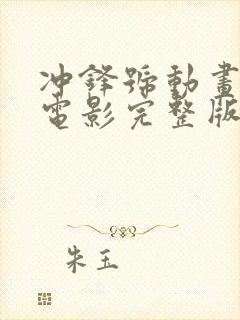 冲鋒號動畫
電影完整版
朱玉